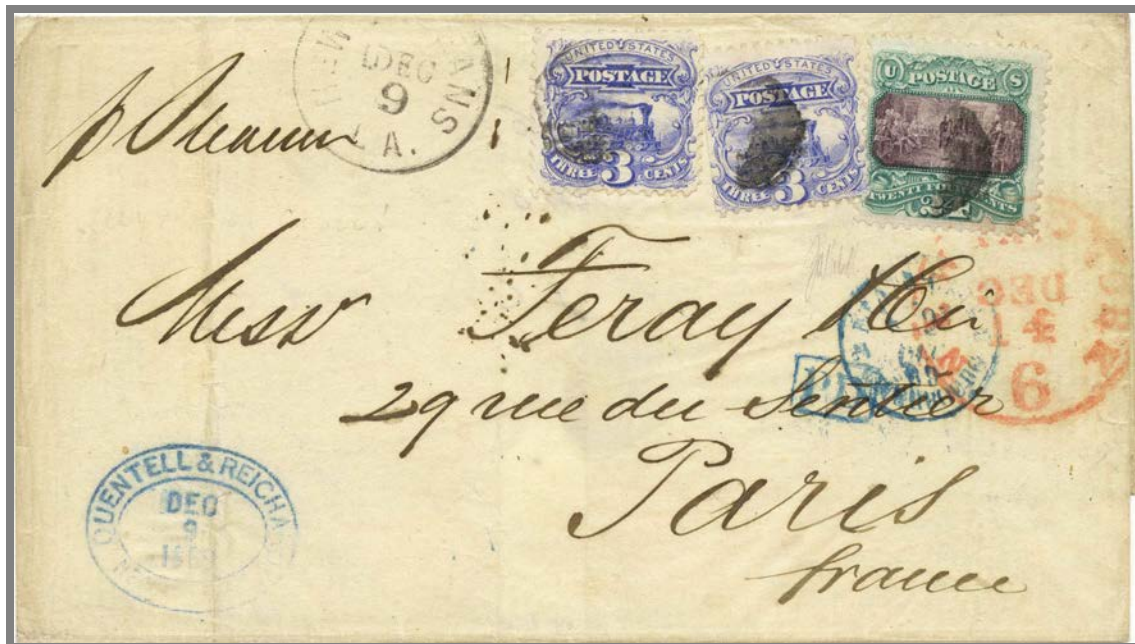 NEW ANS
DEC
9
LA.
UNITED STATES
POSTAGE
THREE 3 CENTS
UNITED STATES
POSTAGE
THREE 3 CENTS
U POSTAGE S
TWENTY FOUR CENTS
24
Mess Feray
29 rue du Sentier
Paris
france
YORK
DEC
14
6
QUENTELL & REICHA
DEC
9